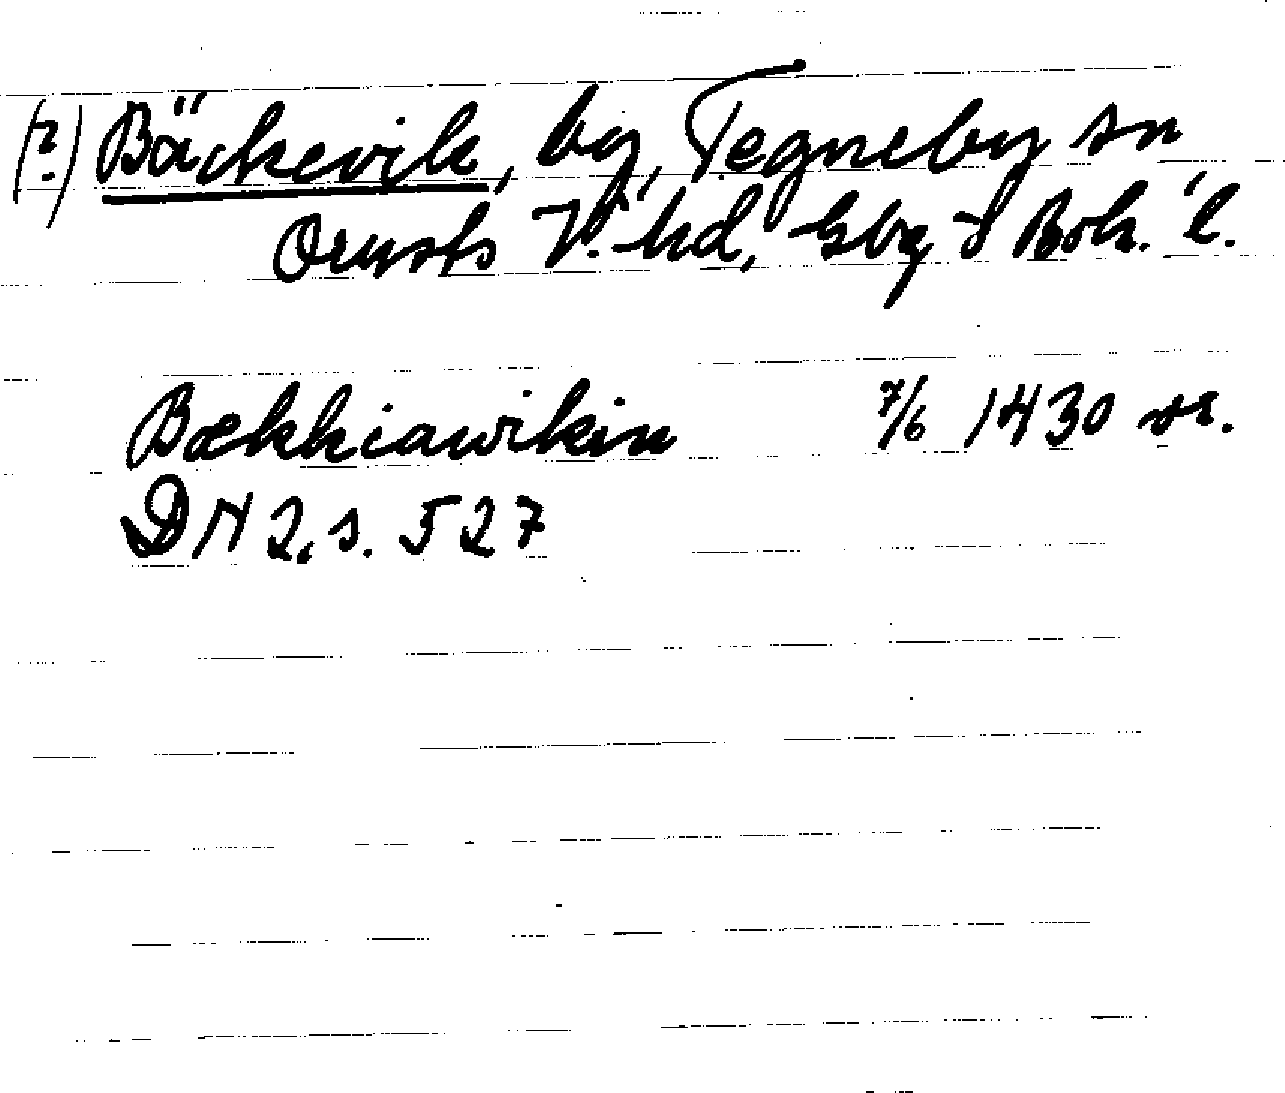 (?) Bäckevik, by, Tegneby sn
Orusts V. hd, Gbg o Boh. l.
Bækkiawikin 7/6 1430 or.
DN 2, s. 527